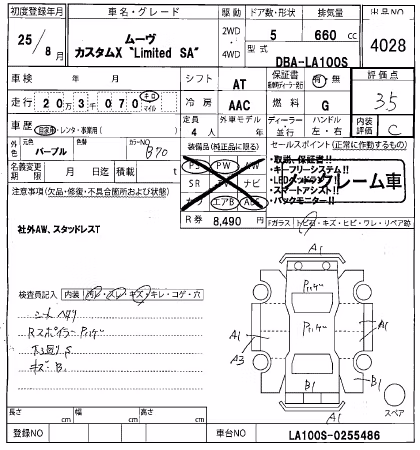 初度登録年月
車名・グレード
駆動
ドア数・形状
排気量
出品NO
25/8月
ムーヴ
カスタムX "Limited SA"
2WD・4WD
5
660 cc
4028
型式
DBA-LA100S
車検 年 月
シフト
AT
保証書
有・無
評価点
3.5
走行 20万3千070 キロ マイル
冷房
AAC
燃料
G
車歴 自家用・レンタ・事業用( )
定員
4人
外車モデル
年
ディーラー
並行
ハンドル
左・右
内装評価
C
元色
パープル
色替
カラーNO
B70
名義変更期限
月 日
積載 t
装備品(純正品に限る)
セールスポイント(正常に作動するもの)
PS PW AW
SR TV ナビ
カワ エアB ABS
・取説、保証書!!
・キーフリーシステム!!
・LEDヘッドランプ
・スマートアシスト!!
・バックモニター!!
ノークレーム車
注意事項(欠品・修復・不具合箇所および状態)
R券
8,490円
Fガラス
トビ石・キズ・ヒビ・ワレ・リペア跡
社外AW、スタッドレスT
A1
検査員記入
内装
汚レ・スレ・キズ・キレ・コゲ・穴
シートヘタリ
Rスポイラー
下廻りS
キズB.
A1
A1
A3
B1
B1
A1
スペア
長さ cm
幅 cm
高さ cm
登録NO
車台NO
LA100S-0255486